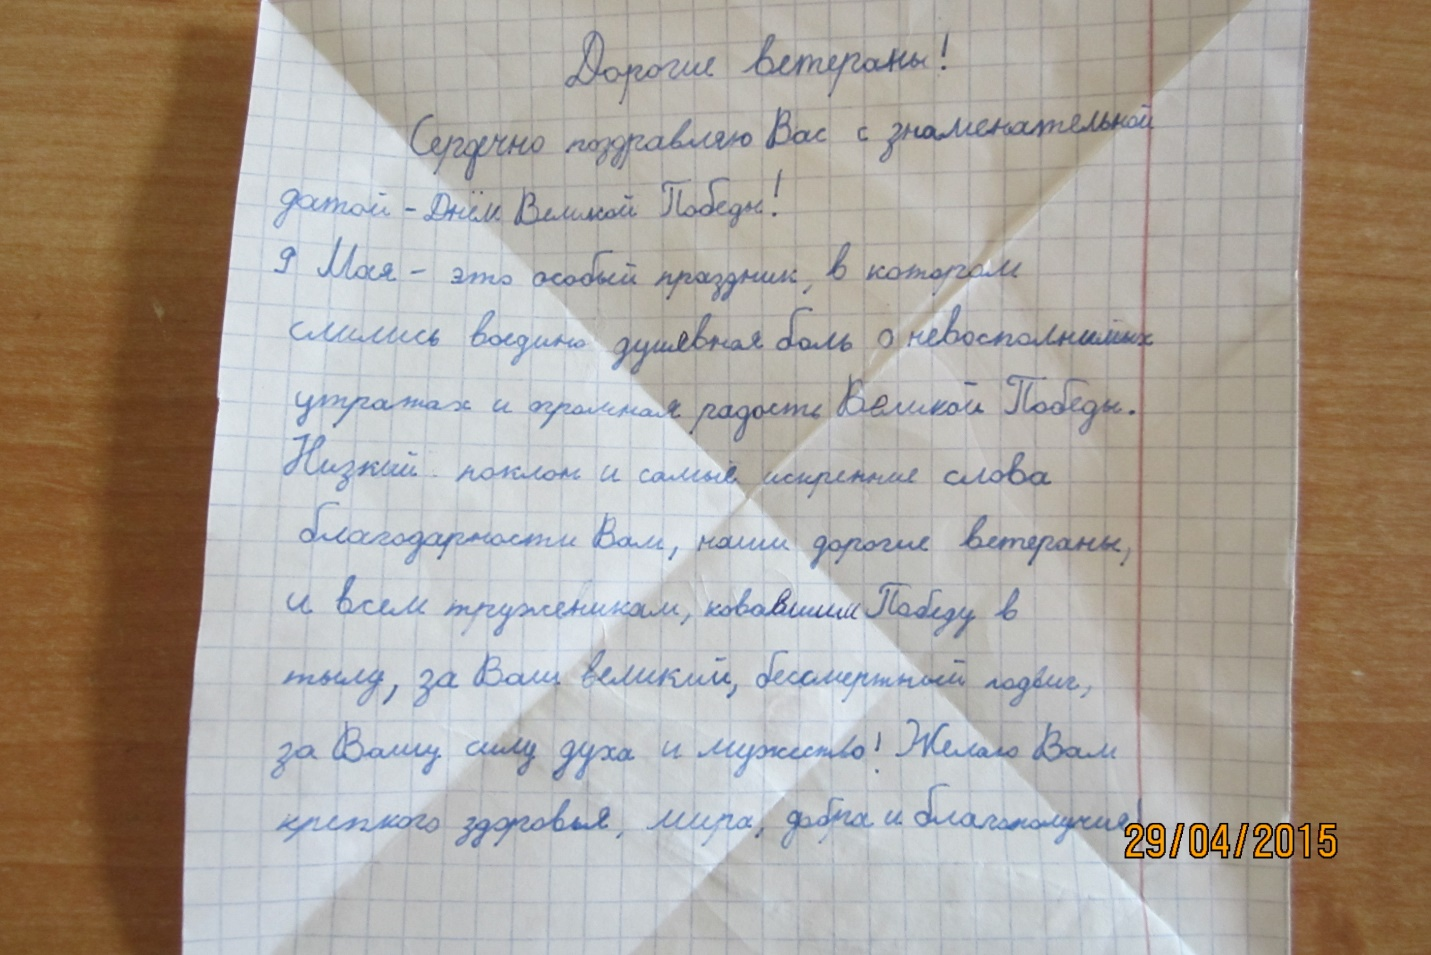 Дорогие ветераны!
Сердечно поздравляю Вас с знаменательной
датой - Днём Великой Победы!
9 Мая - это особый праздник, в котором
слились воедино душевная боль о невосполнимых
утратах и огромная радость Великой Победы.
Низкий поклон и самые искренние слова
благодарности Вам, наши дорогие ветераны,
и всем труженикам, ковавшим Победу в
тылу, за Ваш великий, бессмертный подвиг,
за Вашу силу духа и мужество! Желаю Вам
крепкого здоровья, мира, добра и благополучия!
29/04/2015